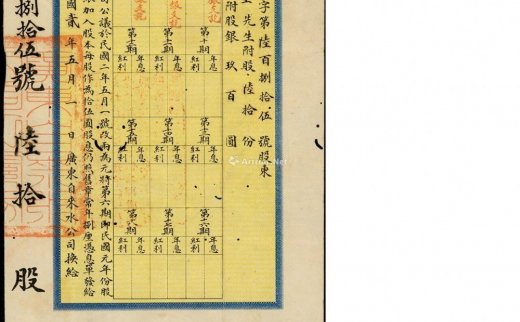 字第陸百捌拾伍號股東
先生附股陸拾份
附股銀玖百圓
第十期
年息
紅利
第十一期
年息
紅利
第十二期
年息
紅利
第十三期
年息
紅利
第十四期
年息
紅利
第十五期
年息
紅利
第十六期
年息
紅利
第十七期
年息
紅利
第十八期
年息
紅利
司公議於民國二年五月一號改兩為元將第六期即民國元年份股
加入股本每股作為拾伍圓股息仍照舊章常年捌厘憑息單發給
國貳年五月一日廣東自來水公司換給
捌拾伍號陸拾股
ArtronNet